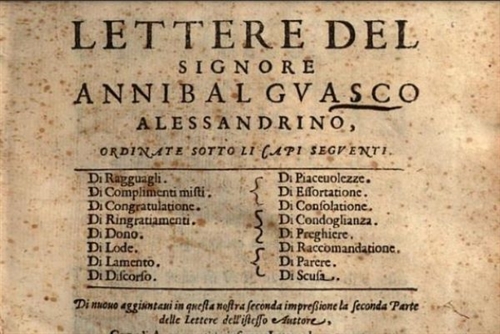 LETTERE DEL
SIGNORE
ANNIBAL GVASCO
ALESSANDRINO,
ORDINATE SOTTO LI CAPI SEGVENTI.
Di Ragguagli.
Di Complimenti misti.
Di Congratulatione.
Di Ringratiamenti.
Di Dono.
Di Lode.
Di Lamento.
Di Discorso.
Di Piaceuolezze.
Di Essortatione.
Di Consolatione.
Di Condoglianza.
Di Preghiere.
Di Raccomandatione.
Di Parere.
Di Scusa.
Di nuouo aggiuntaui in questa nostra seconda impressione la seconda Parte
delle Lettere dell'istesso Auttore,